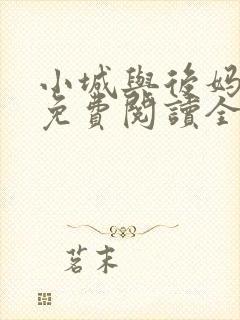 小城與後妈
免費閱讀全
茗末